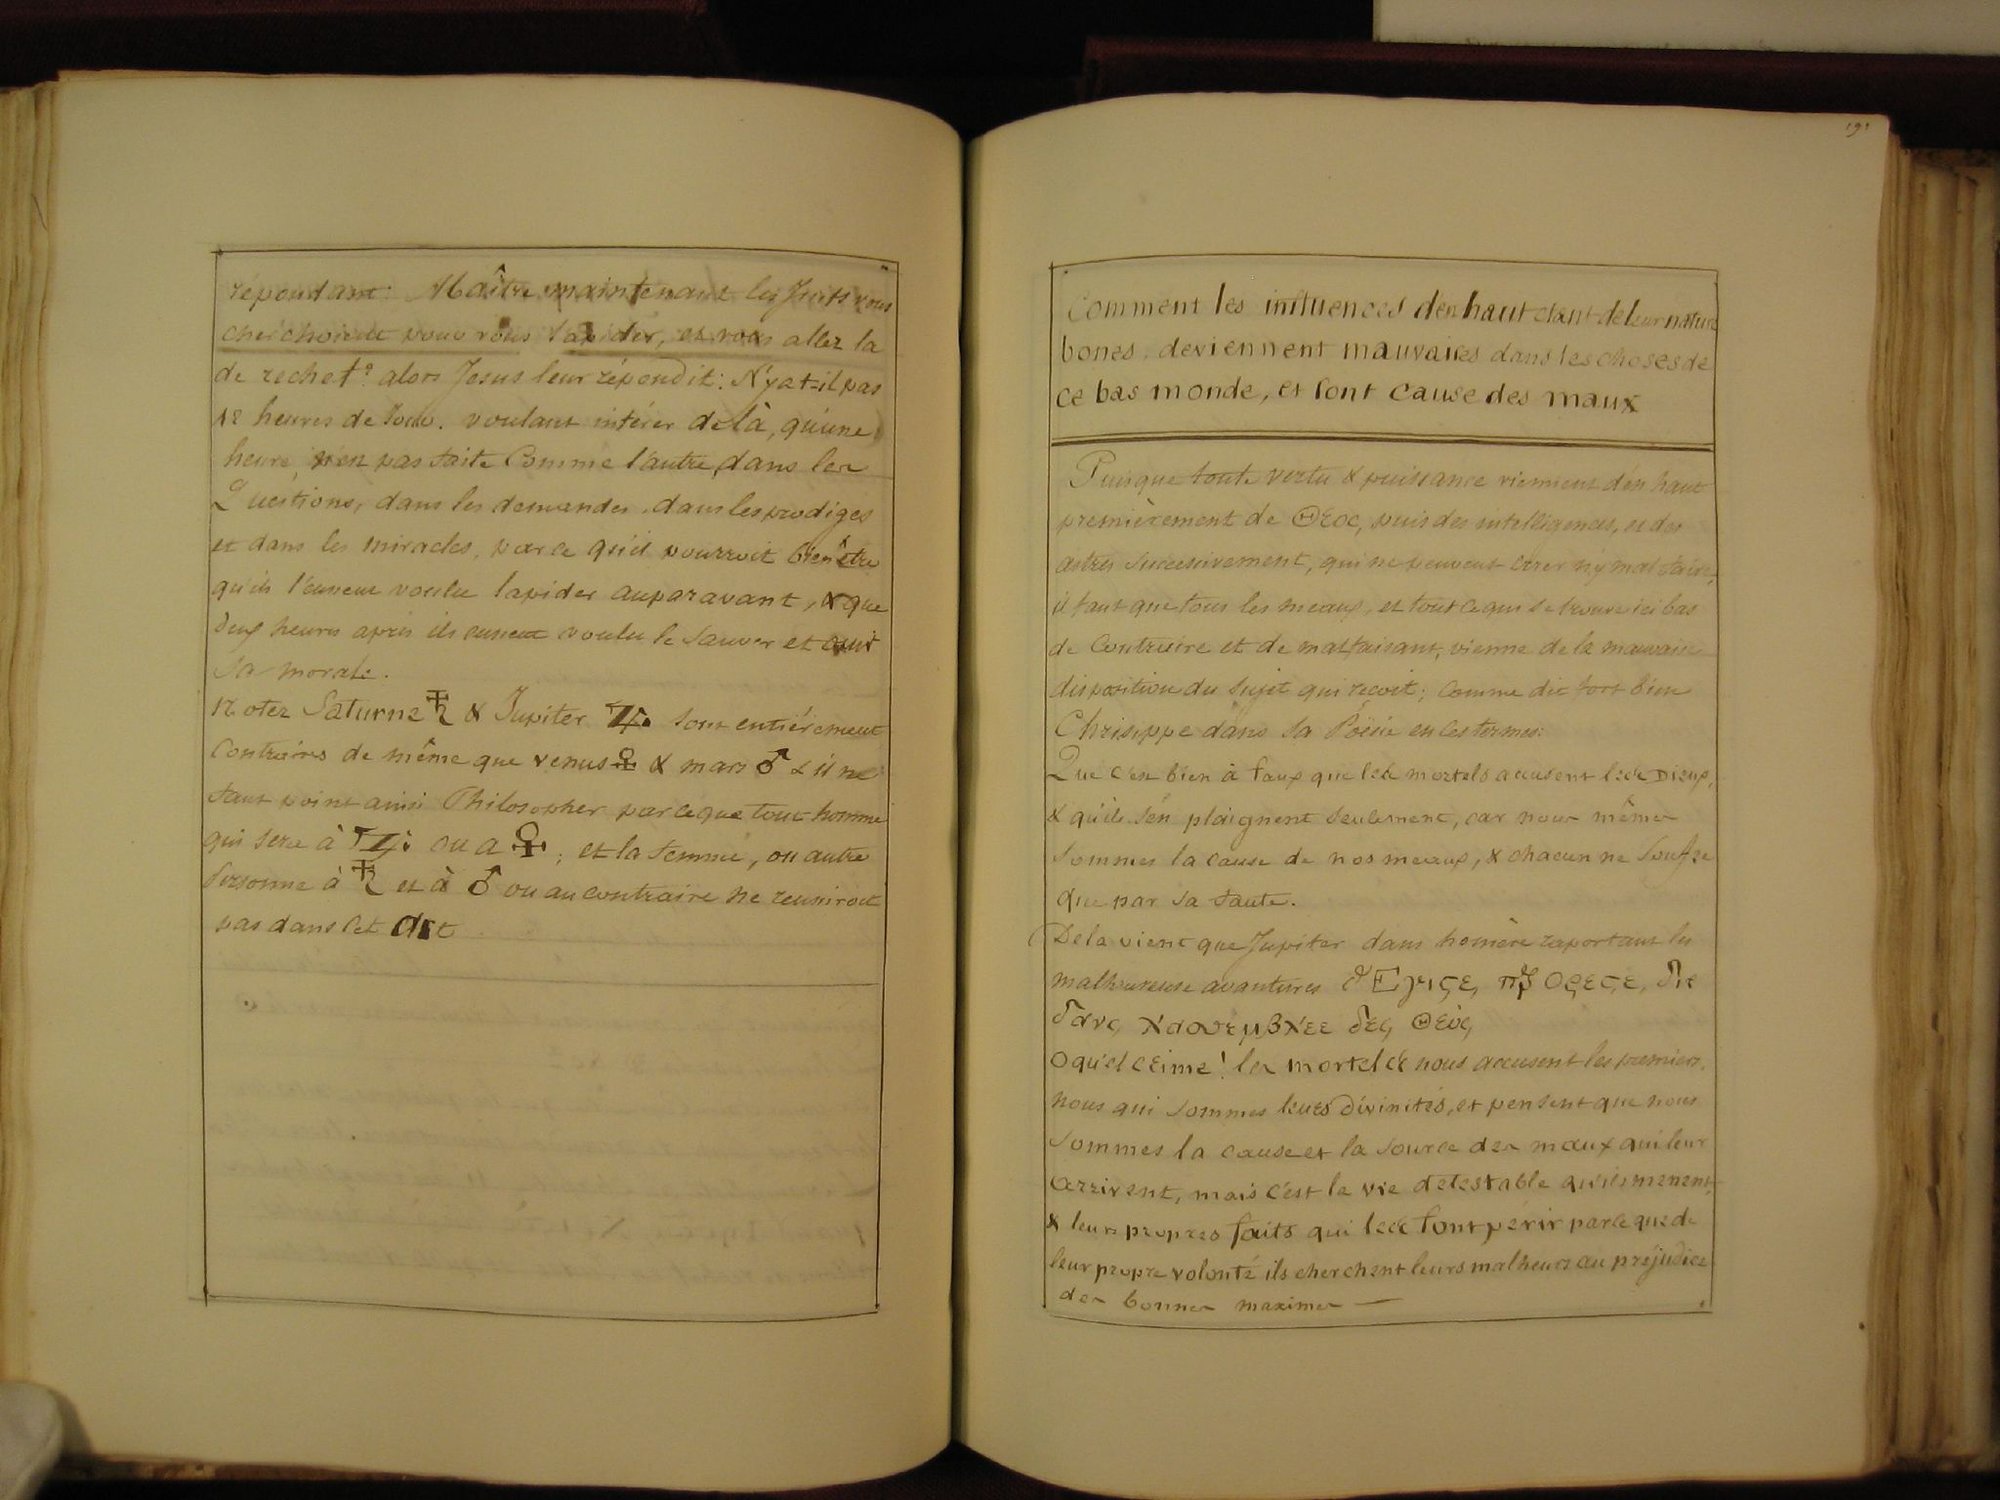 répondant: Maître maintenant les Juifs vous
cherchoient pour vous lapider, et vous allez la
de rechef? alors Jesus leur répondit: N'y a t-il pas
12 heures de Jour. voulant inférer de là, qu'une
heure n'est pas faite Comme l'autre, dans les
Questions, dans les demandes, dans les prodiges
et dans les miracles, parce qu'il pourroit bien être
qu'ils l'eussent voulu lapider auparavant, & que
deux heures après ils eussent voulu le Sauver et
Sa morale.
Notez Saturne ♄ & Jupiter ♃ sont entièrement
Contraires de même que venus ♀ & mars ♂ & il ne
faut point ainsi Philosopher parceque tout homme
qui sera à ♃ ou a ♀; et la femme, ou autre
Personne à ♄ et à ♂ ou au contraire ne reussiroit
pas dans cet Art
191
Comment les influences d'en haut étant de leur nature
bones, deviennent mauvaises dans les choses de
ce bas monde, et sont cause des maux
Puisque toute vertu & puissance viennent d'en haut
premièrement de Θεος, puis des intelligences, et des
astres Successivement, qui ne peuvent errer n'y mal faire,
il faut que tous les meaux, et tout ce qui se trouve ici bas
de Contraire et de malfaisant, vienne de la mauvaise
disposition du Sujet qui reçoit; Comme dit fort bien
Chrisippe dans Sa Poësie en ces termes:
Que c'est bien à faux que les mortels accusent les Dieux,
& qu'ils s'en plaignent seulement, car nous mêmes
Sommes la cause de nos meaux, & chacun ne Souffre
que par Sa faute.
De la vient que Jupiter dans homère raportant les
malheureuse avantures
Θεος
O quel crime! les mortels nous accusent les premiers,
nous qui sommes leurs Divinités, et pensent que nous
Sommes la cause et la source des maux qui leur
arrivent, mais c'est la vie detestable qu'ils menent,
& leurs propres faits qui les font périr parce que de
leur propre volonté ils cherchent leurs malheurs au préjudice
des bonnes maximes —